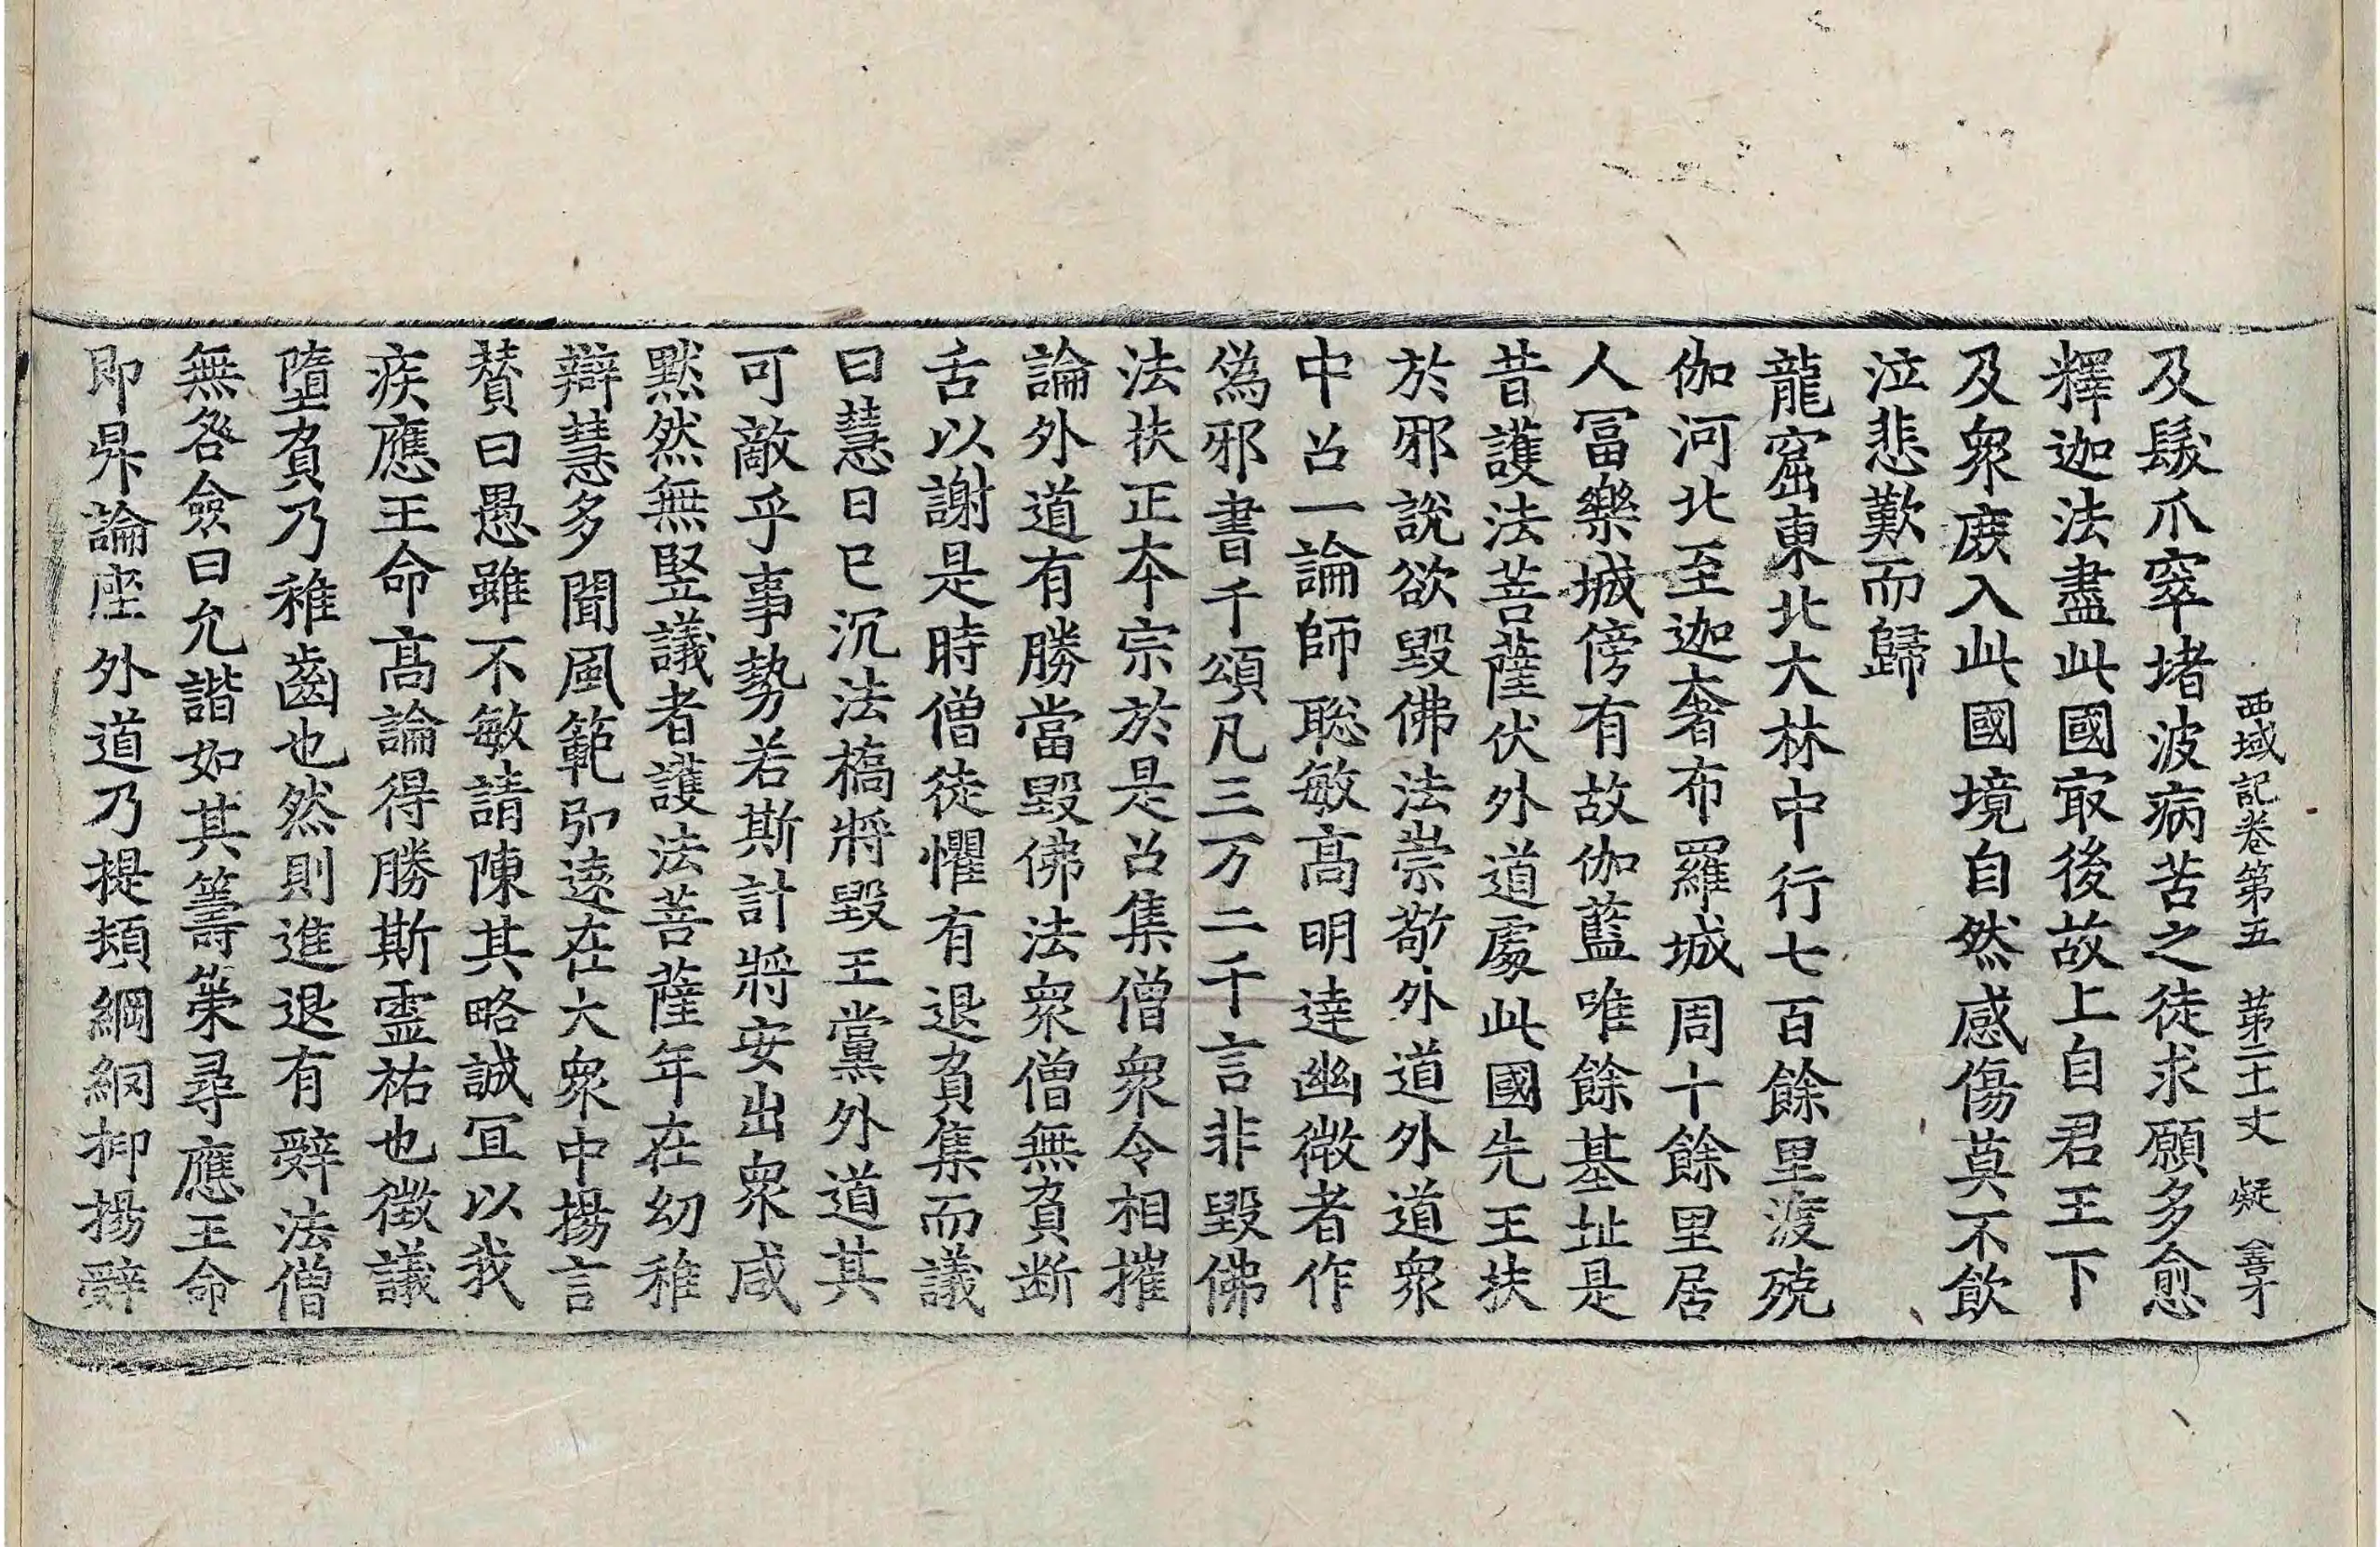 西域記卷第五 第二十丈 凝 善才
及髮爪窣堵波病苦之徒求願多愈
釋迦法盡此國㝡後故上自君王下
及衆庶入此國境自然感傷莫不飮
泣悲歎而歸
龍窟東北大林中行七百餘里渡殑
伽河北至迦奢布羅城周十餘里居
人冨樂城傍有故伽藍唯餘基址是
昔護法菩薩伏外道處此國先王扶
於邪說欲毀佛法崇敬外道外道衆
中召一論師聡敏髙明達幽微者作
偽邪書千頌凡三万二千言非毀佛
法扶正本宗於是召集僧衆令相摧
論外道有勝當毀佛法衆僧無負断
舌以謝是時僧徒懼有退負集而議
曰慧日已沉法橋將毀王黨外道其
可敵乎事勢若斯計將安出衆咸
黙然無竪議者護法菩薩年在幼稚
辯慧多聞風範弘遠在大衆中揚言
賛曰愚雖不敏請陳其略誠冝以我
疾應王命髙論得勝斯靈祐也徴議
墮負乃稚齒也然則進退有辭法僧
無咎僉曰允諧如其籌策尋應王命
即昇論座外道乃提頬綱網抑揚辭